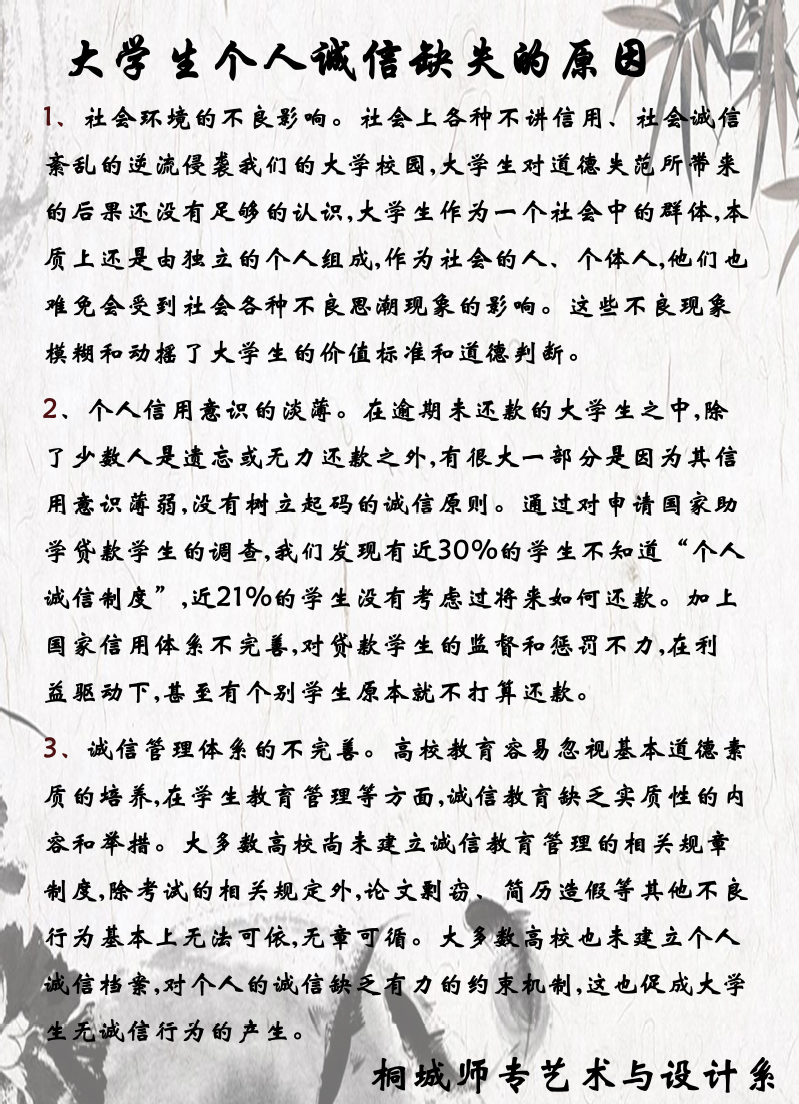 大学生个人诚信缺失的原因
1、社会环境的不良影响。社会上各种不讲信用、社会诚信
紊乱的逆流侵袭我们的大学校园,大学生对道德失范所带来
的后果还没有足够的认识,大学生作为一个社会中的群体,本
质上还是由独立的个人组成,作为社会的人、个体人,他们也
难免会受到社会各种不良思潮现象的影响。这些不良现象
模糊和动摇了大学生的价值标准和道德判断。
2、个人信用意识的淡薄。在逾期未还款的大学生之中,除
了少数人是遗忘或无力还款之外,有很大一部分是因为其信
用意识薄弱,没有树立起码的诚信原则。通过对申请国家助
学贷款学生的调查,我们发现有近30%的学生不知道“个人
诚信制度”,近21%的学生没有考虑过将来如何还款。加上
国家信用体系不完善,对贷款学生的监督和惩罚不力,在利
益驱动下,甚至有个别学生原本就不打算还款。
3、诚信管理体系的不完善。高校教育容易忽视基本道德素
质的培养,在学生教育管理等方面,诚信教育缺乏实质性的内
容和举措。大多数高校尚未建立诚信教育管理的相关规章
制度,除考试的相关规定外,论文剽窃、简历造假等其他不良
行为基本上无法可依,无章可循。大多数高校也未建立个人
诚信档案,对个人的诚信缺乏有力的约束机制,这也促成大学
生无诚信行为的产生。
桐城师专艺术与设计系